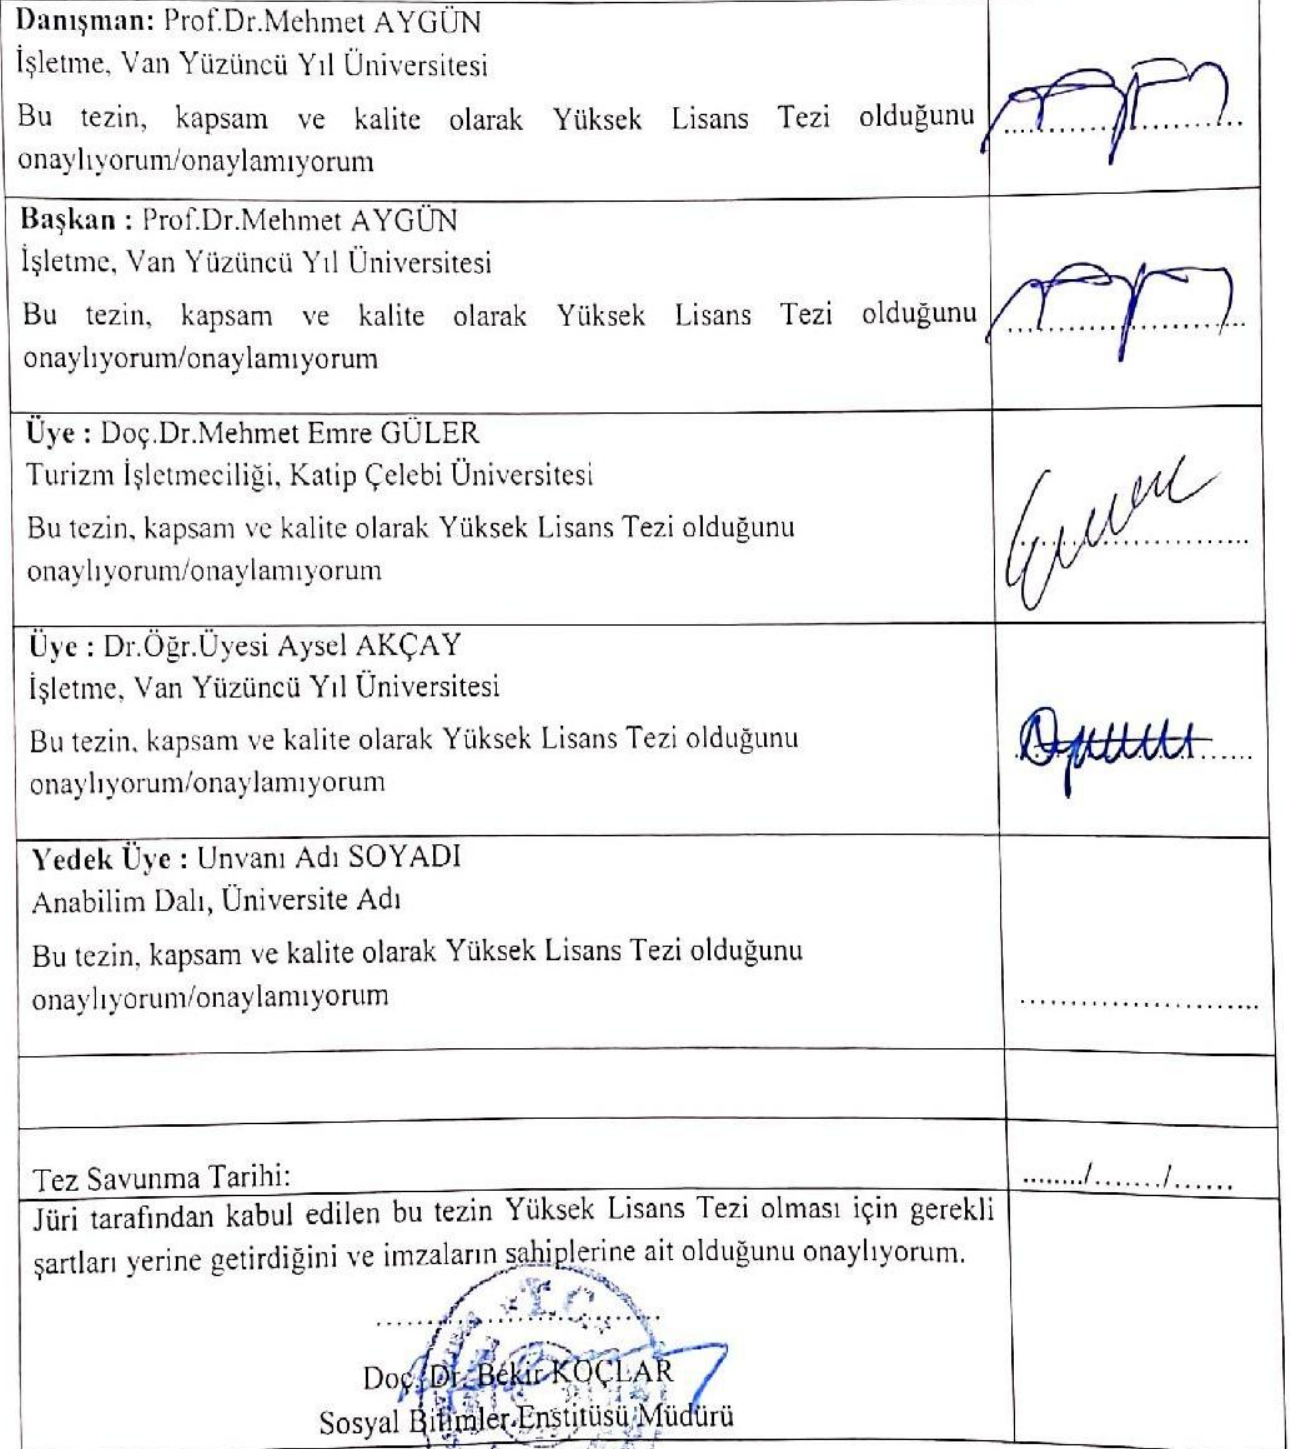 Danışman: Prof.Dr.Mehmet AYGÜN
İşletme, Van Yüzüncü Yıl Üniversitesi
Bu tezin, kapsam ve kalite olarak Yüksek Lisans Tezi olduğunu
onaylıyorum/onaylamıyorum
Başkan : Prof.Dr.Mehmet AYGÜN
İşletme, Van Yüzüncü Yıl Üniversitesi
Bu tezin, kapsam ve kalite olarak Yüksek Lisans Tezi olduğunu
onaylıyorum/onaylamıyorum
Üye : Doç.Dr.Mehmet Emre GÜLER
Turizm İşletmeciliği, Katip Çelebi Üniversitesi
Bu tezin, kapsam ve kalite olarak Yüksek Lisans Tezi olduğunu
onaylıyorum/onaylamıyorum
Üye : Dr.Öğr.Üyesi Aysel AKÇAY
İşletme, Van Yüzüncü Yıl Üniversitesi
Bu tezin, kapsam ve kalite olarak Yüksek Lisans Tezi olduğunu
onaylıyorum/onaylamıyorum
Yedek Üye : Unvanı Adı SOYADI
Anabilim Dalı, Üniversite Adı
Bu tezin, kapsam ve kalite olarak Yüksek Lisans Tezi olduğunu
onaylıyorum/onaylamıyorum
........................
Tez Savunma Tarihi:
......../......./......
Jüri tarafından kabul edilen bu tezin Yüksek Lisans Tezi olması için gerekli
şartları yerine getirdiğini ve imzaların sahiplerine ait olduğunu onaylıyorum.
T.C.
Doç. Dr. Bekir KOÇLAR
Sosyal Bilimler Enstitüsü Müdürü